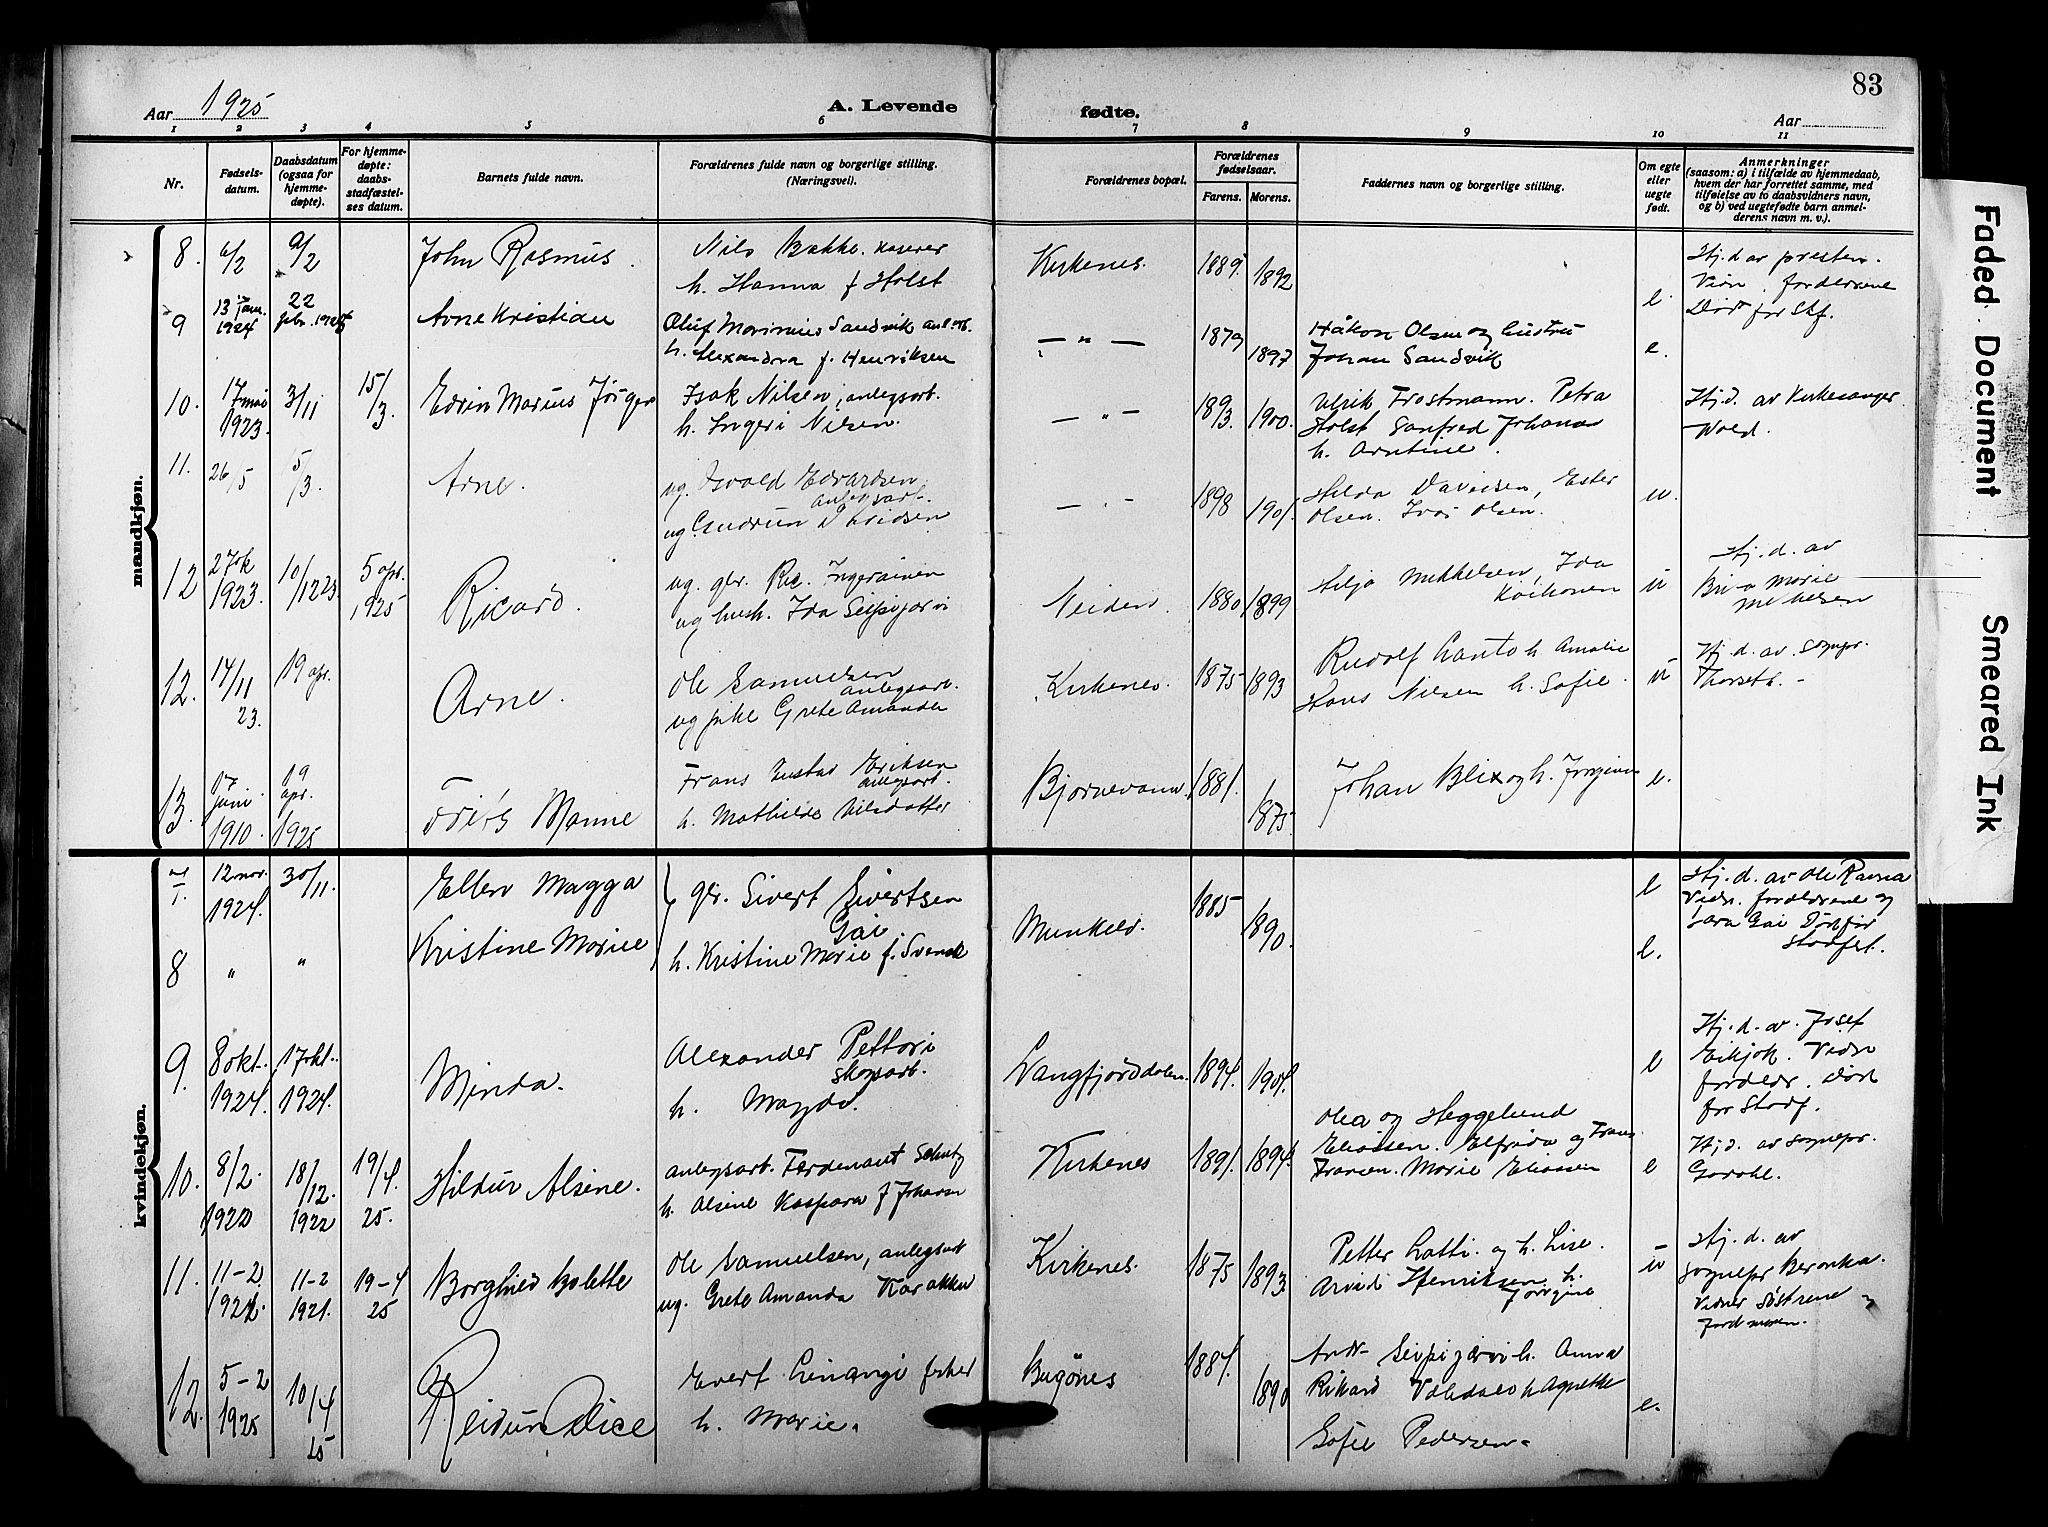 83
Aar 1925
A. Levende fødte.
Aar
1 2 3 4 5 6 7 8 9 10 11
Nr.
Fødsels-
datum.
Daabsdatum
(ogsaa for
hjemme-
døpte).
For hjemme-
døpte:
daabs-
stadfæstel-
ses datum.
Barnets fulde navn.
Forældrenes fulde navn og borgerlige stilling.
(Næringsvei).
Forældrenes bopæl.
Forældrenes
fødselsaar.
Farens. Morens.
Faddernes navn og borgerlige stilling.
Om egte
eller
uegte
født.
Anmerkninger
(saasom: a) i tilfælde av hjemmedaab,
hvem der har forrettet samme, med
tilføielse av to daabsvidners navn,
og b) ved uegtefødte barn anmel-
derens navn m. v.).
mandkjøn.
8. 6/2 9/2 John Rasmus.
Nils Bakke. kaserer
h. Hanna f Holst
Kirkenes. 1889 1892 e.
Hj. d av presten.
Vidn. forældrene
Død før Stf.
9 13 jan. 1924 22 febr. 1925 Arne Kristian
Oluf Marinius Sandvik anl. arb.
h. Alexandra f. Henriksen
— " — 1879 1897
Håkon Olsen og hustru
Johan Sandvik
e.
10. 17 mai 1923. 3/11 15/3. Edvin Marius Jörgen
Isak Nilsen, anlegsarb.
h. Ingeri Nilsen.
— " — 1893. 1900.
Ulrik Frostmann. Petra
Holst Sanfred Johansen
h. Arntine.
Hj. d. av Kirkesanger
Wold.
11. 26/5 5/3. Arne.
ug. Osvald Edvardsen,
anlegsarb.
ug Gudrun Davidsen
— " — 1898 1901.
Hilda Davidsen, Ester
Olsen. Ivar Olsen.
u.
12 27 ok 1923. 10/12 23. 5 apr. 1925 Ricard.
ug. gbr. Ric. Ingerainen
ug hush. Ida Seipijærvi
Neiden. 1880 1899
Silja Mikkelsen, Ida
Koikonen
u
Hj. d. av
Marie
12. 14/11 23. 19 apr. Arne.
Ole Samuelsen
anlegsarb.
ug pike Grete Amanda
Kirkenes. 1875 1893
Rudolf Lanto h. Amalie
Hans Nilsen h. Sofie.
u
Hj. d. av. Sognepr.
13. 17 juni 1910. 19 apr. 1925 Manne
Frans Gustav Eriksen
anlegsarb.
h. Mathilde Nilsdatter
Bjørnevann. 1881. 1875.
Johan Blix og h. Jørgine
e.
kvindekjøn.
7 12 nov. 1924. 30/11. Ellen Magga
8 " " Kristine Marie
gbr. Sivert Sivertsen
Gai
h. Kristine Marie f. Svensk
Munkelv. 1885 1890.
e
e.
Hj. d. av Ole Ravna
Vidn. forældrene og
Sara Gai Død før
Stadfest.
9. 8 okt. 1924. 17 okt. 1924. Minda.
Alexander Pettori
skogsarb.
h. Magda.
Langfjorddalen. 1894. 1904.
e
Hj. d. av. Josef
Vidn
forældr. død
før Stadf.
10. 8/2. 1922 18/12 1922 19/4. 25. Hildur Alsine.
anlegsarb. Ferdenant Schutz
h. Alsine Kaspara f Johansen
Kirkenes 1891. 1894.
Olea og Heggelund
Eliassen. Elfrida og Frans
Fransen. Marie Eliassen
e
Hj d. av Sognepr.
11. 11-2. 1921. 11-2 1921. 19-4 25 Borghild Bolette
Ole Samuelsen, anlegsarb
ug. Grete Amanda
Kirkenes. 1875 1893.
Petter Latti. og h. Lise.
Arvid Henriksen. h.
Jørgine
u
Hj. d. av
sognepr Beronka.
Vidner Søstrene og
Jordmoren.
12. 5-2 1925 10/4 25 Reidun Alice
Evert fisker
h. Marie.
Bugönes 1884. 1890
Seipijærvi h. Anna
Rikard h Agnethe
Sofie Pedersen.
e.
Faded Document
Smeared Ink